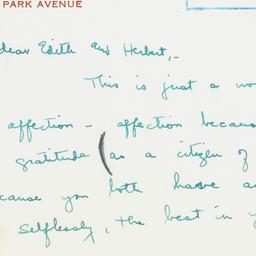 PARK AVENUE
dear Edith and Herbert,-
This is just a wo
affection - affection because
gratitude (as a citizen of
cause you both have a
selflessly, the best in y